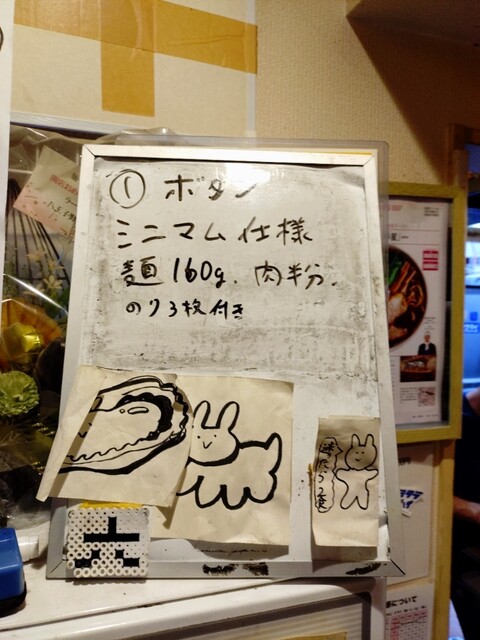 ① ボタン
ミニマム仕様
麺160g. 肉粉.
のり3枚付き
六